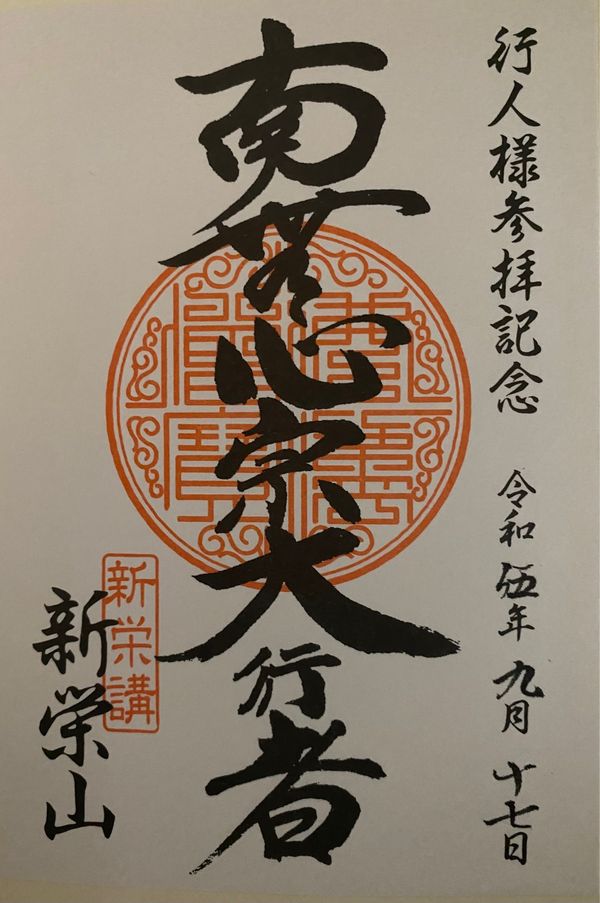 行人様参拝記念 令和伍年 九月 十七日
南無心宗大行者
新栄講
新榮山